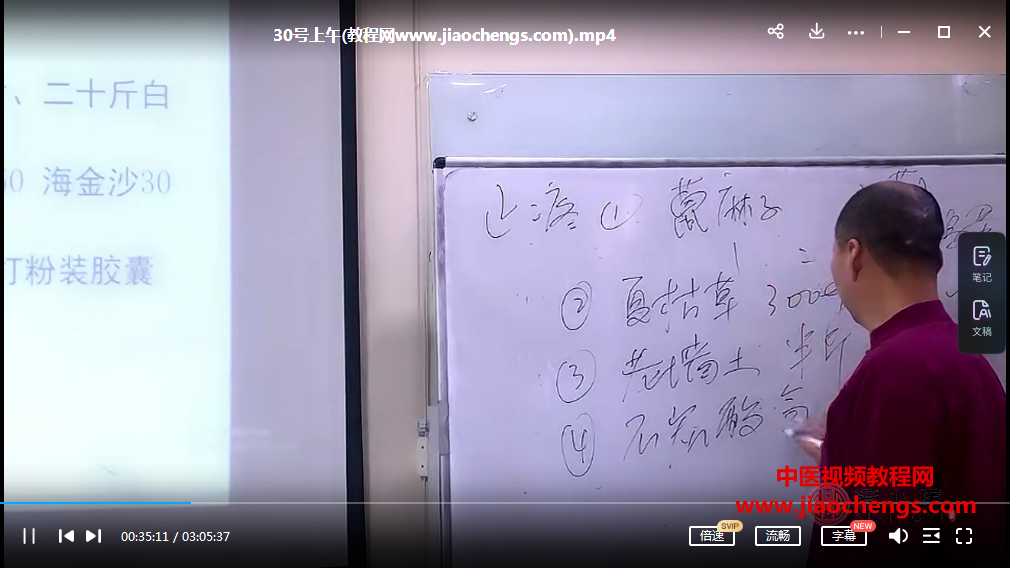 30号上午(教程网www.jiaochengs.com).mp4
、二十斤白
0 海金沙30
打粉装胶囊
止疼 ① 蓖麻子
② 夏枯草 3000
③ 老墙土 半斤
④ 石炭酸
笔记
文稿
中医视频教程网
www.jiaochengs.com
00:35:11 / 03:05:37
倍速 SVIP
流畅
字幕 NEW